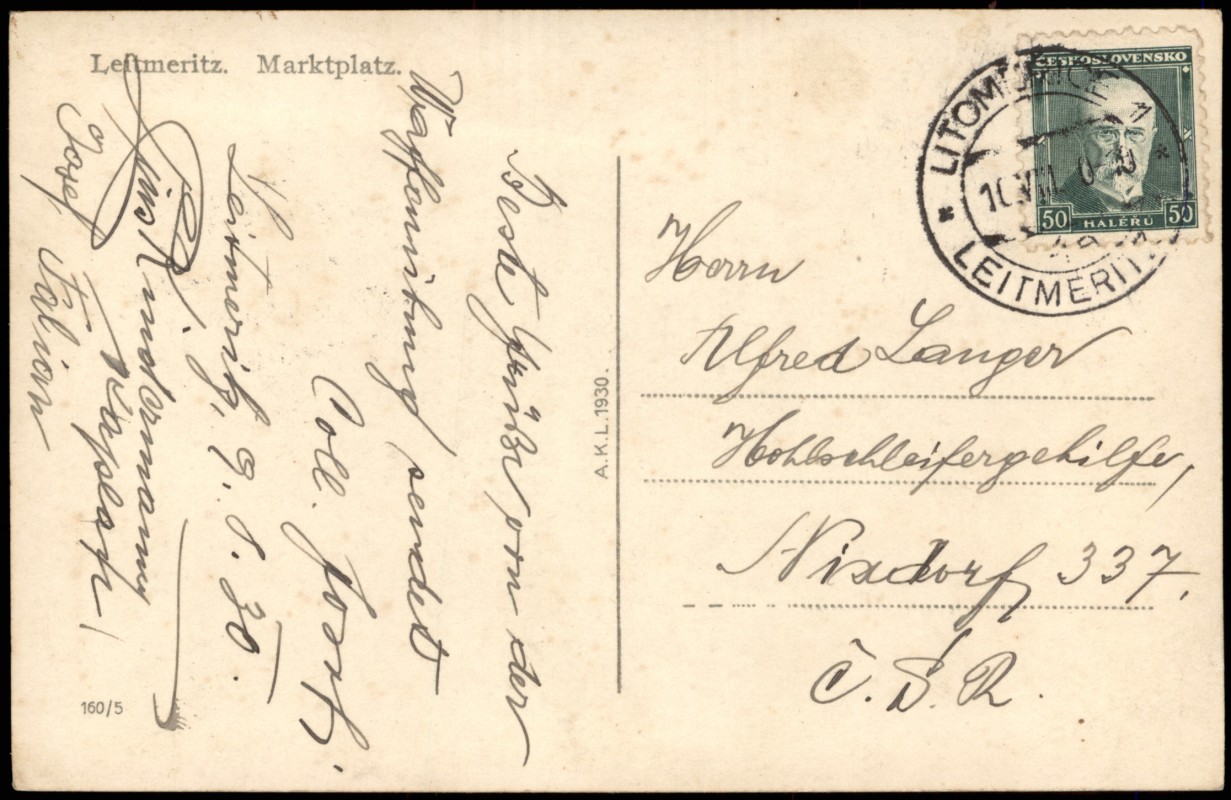 Leitmeritz. Marktplatz.
Beste Grüße von der
Waffenübung sendet
Coll. Josef
Leitmeritz, 9. 8. 30.
Kindermann
Josef Fabian
A.K.L. 1930.
160/5
ČESKOSLOVENSKO
50 HALÉŘŮ 50
LITOMĚŘICE 1
10.VIII.
LEITMERITZ
Herrn
Alfred Langer
Hohlschleifergehilfe,
Nixdorf 337.
Č.S.R.